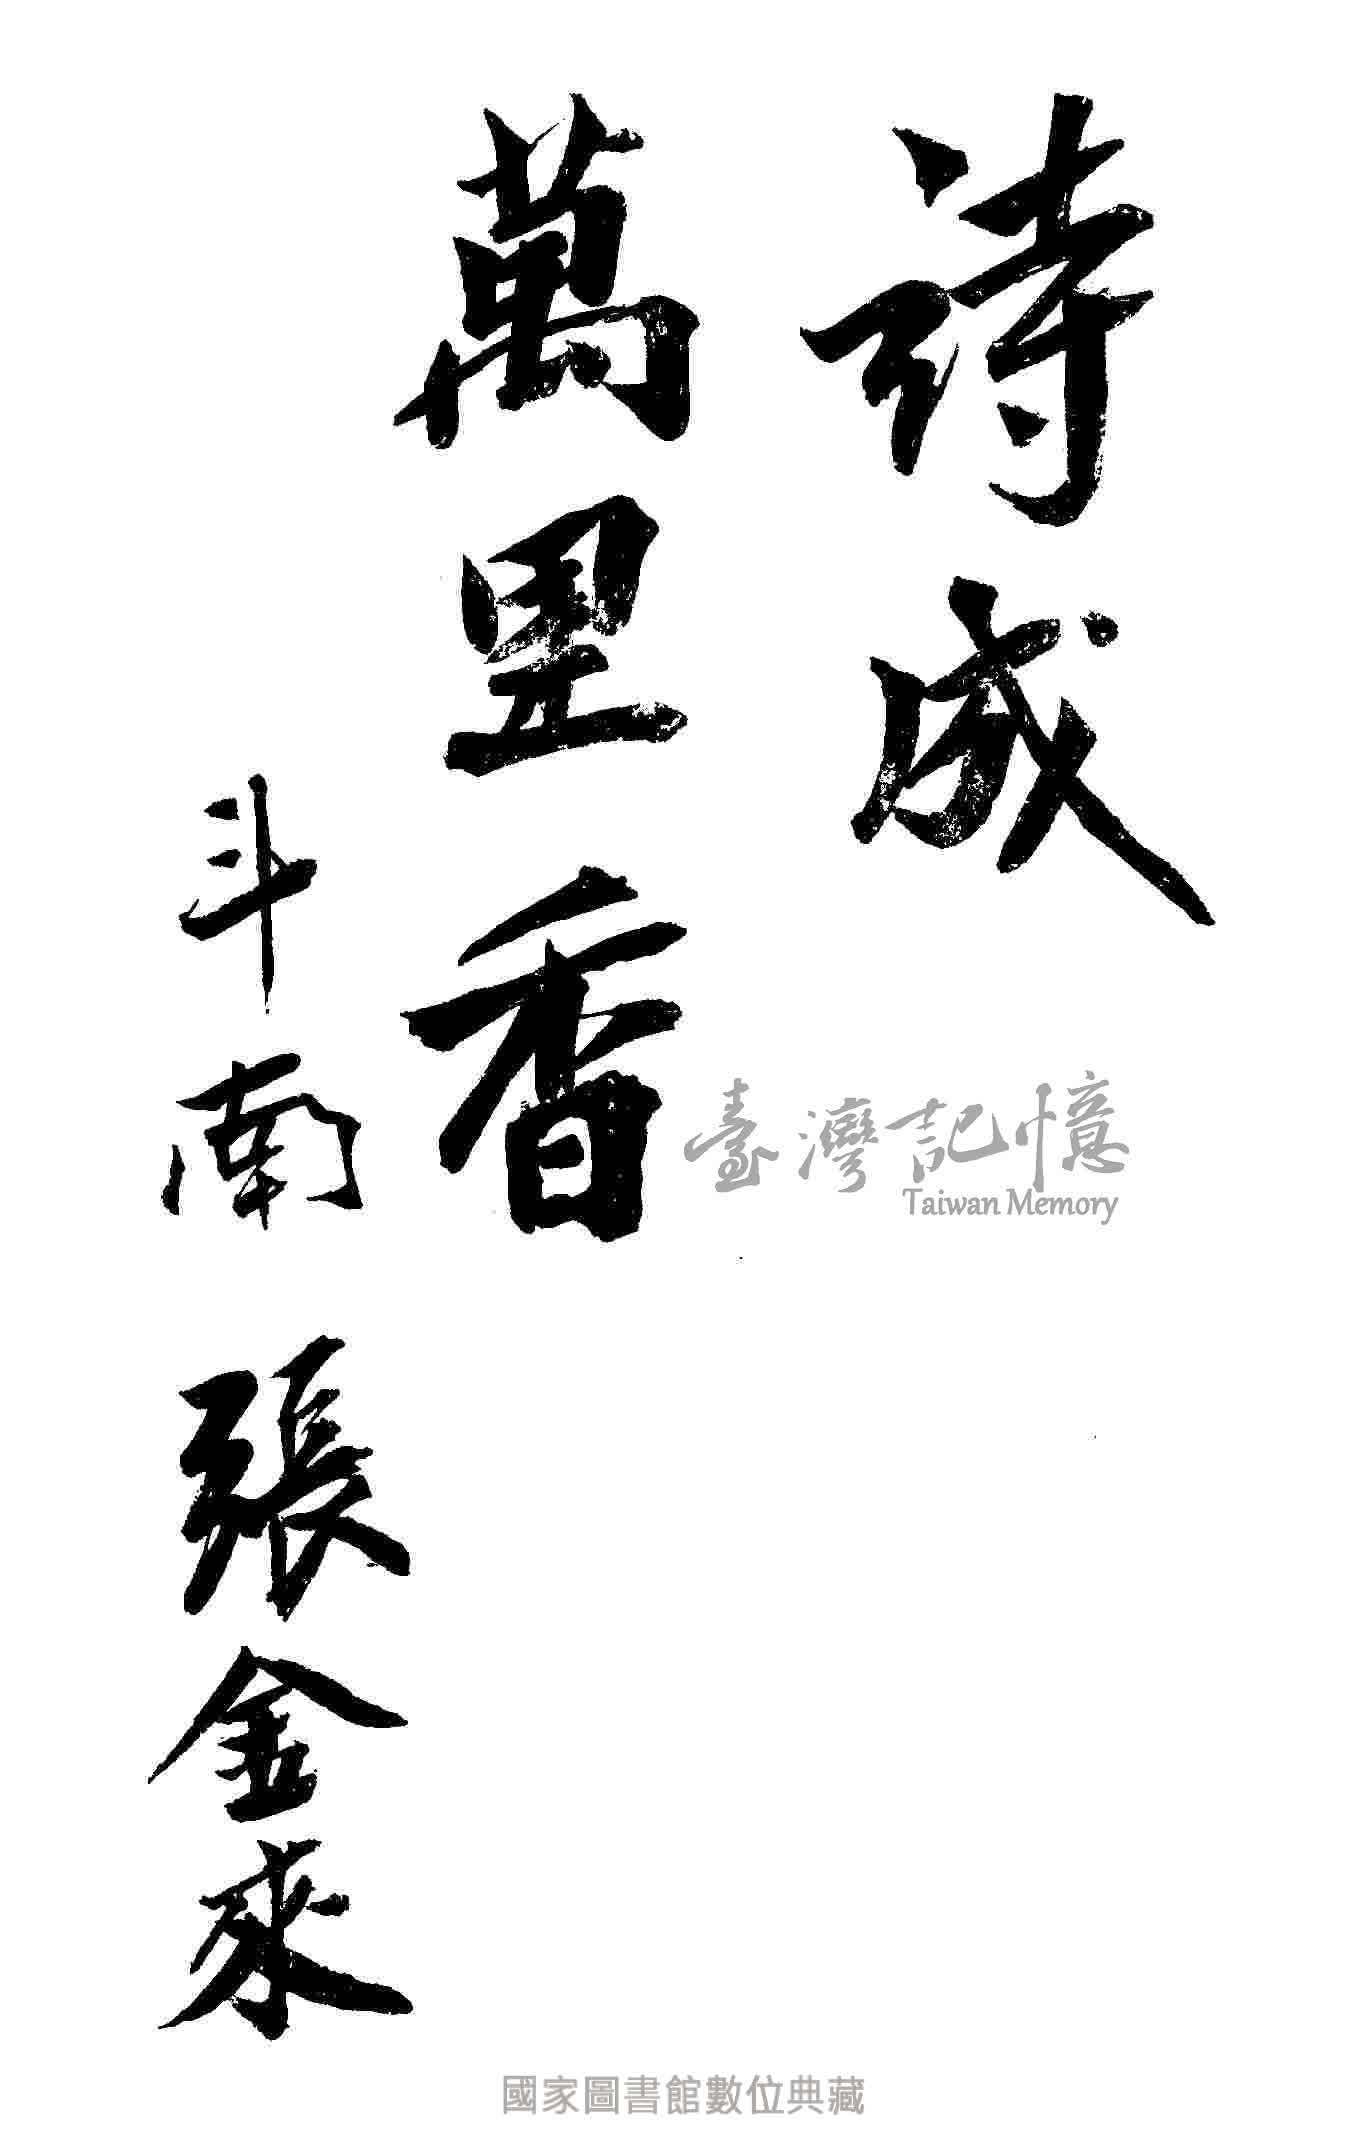 詩成
萬里香
斗南 張金來
臺灣記憶
Taiwan Memory
國家圖書館數位典藏